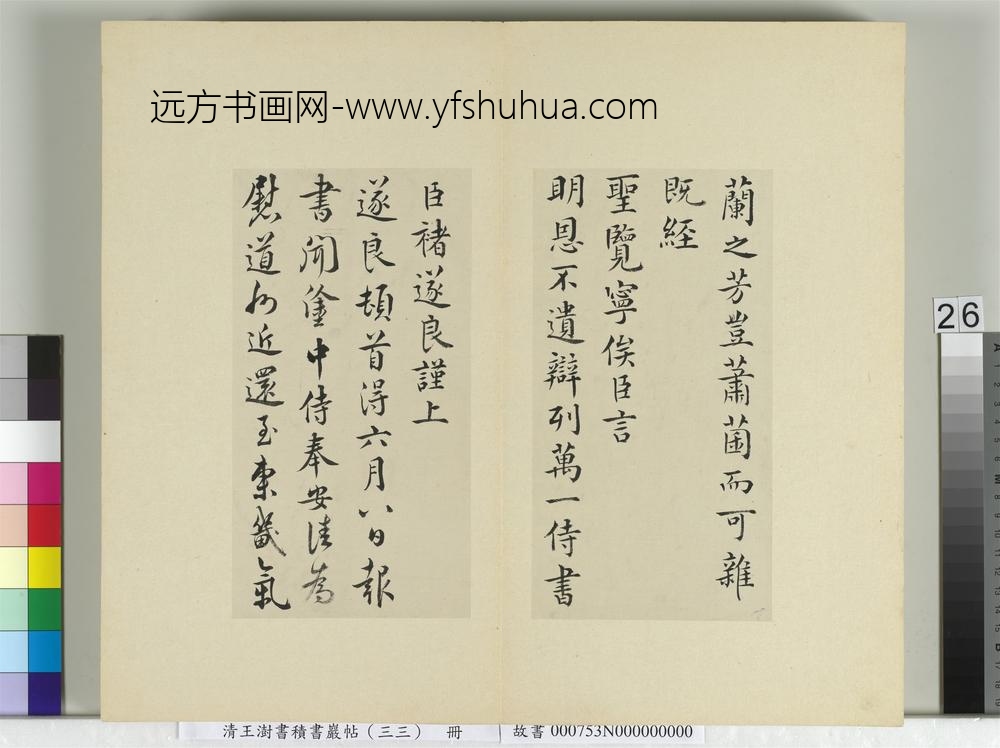 远方书画网-www.yfshuhua.com
蘭之芳豈蕭菌而可雜
既経
聖覽寧俟臣言
明恩不遺辯列萬一侍書
臣褚遂良謹上
遂良頓首得六月八日報
書聞塗中侍奉安佳為
慰道力近還至業氣
26
清王澍書積書巖帖（三三） 冊
故書 000753N000000000